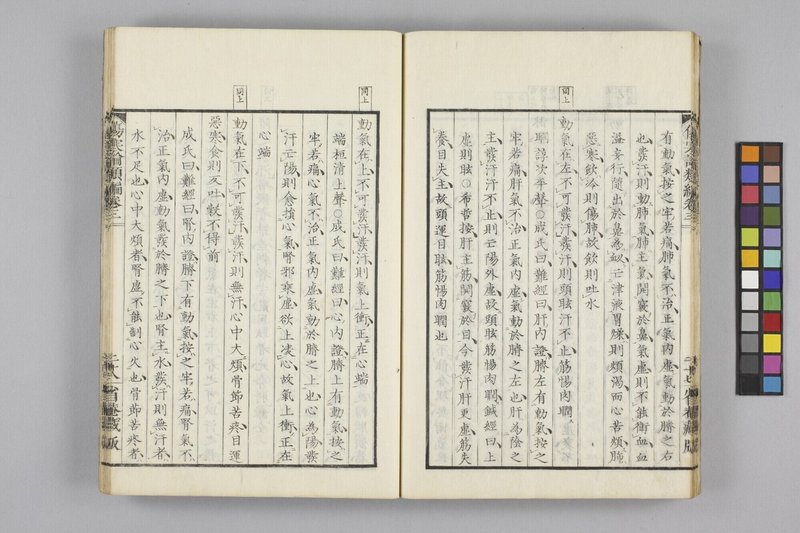 有動氣按之牢若痛肺氣不治正氣內虛氣動於臍之右
也發汗則動肺氣肺主氣開竅於鼻氣虛則不能衛血血
溢妄行隨出於鼻為衂亡津液胃燥則煩渴而心苦煩肺
惡寒飲冷則傷肺故飲則吐水
同上
動氣在左不可發汗發汗則頭眩汗不止筋惕肉瞤
瞤諄次平聲○成氏曰難經曰肝內證臍左有動氣按之
牢若痛肝氣不治正氣內虛氣動於臍之左也肝為陰之
主發汗汗不止則亡陽外虛故頭眩筋惕肉瞤鍼經曰上
虛則眩○希哲按肝主筋開竅於目今發汗肝更虛筋失
養目失主故頭運目眩筋惕肉瞤也
二十七
同上
動氣在上不可發汗發汗則氣上衝正在心端
端桓清上聲○成氏曰難經曰心內證臍上有動氣按之
牢若痛心氣不治正氣內虛氣動於臍之上也心為陽發
汗亡陽則愈損心氣腎邪乘虛欲上凌心故氣上衝正在
心端
同上
動氣在下不可發汗發汗則無汗心中大煩骨節苦疼目運
惡寒食則反吐穀不得前
成氏曰難經曰腎內證臍下有動氣按之牢若痛腎氣不
治正氣內虛動氣發於臍之下也腎主水發汗則無汗者
水不足也心中大煩者腎虛不能制心火也骨節苦疼者
傷寒論類編卷三
二十八
省菴藏版